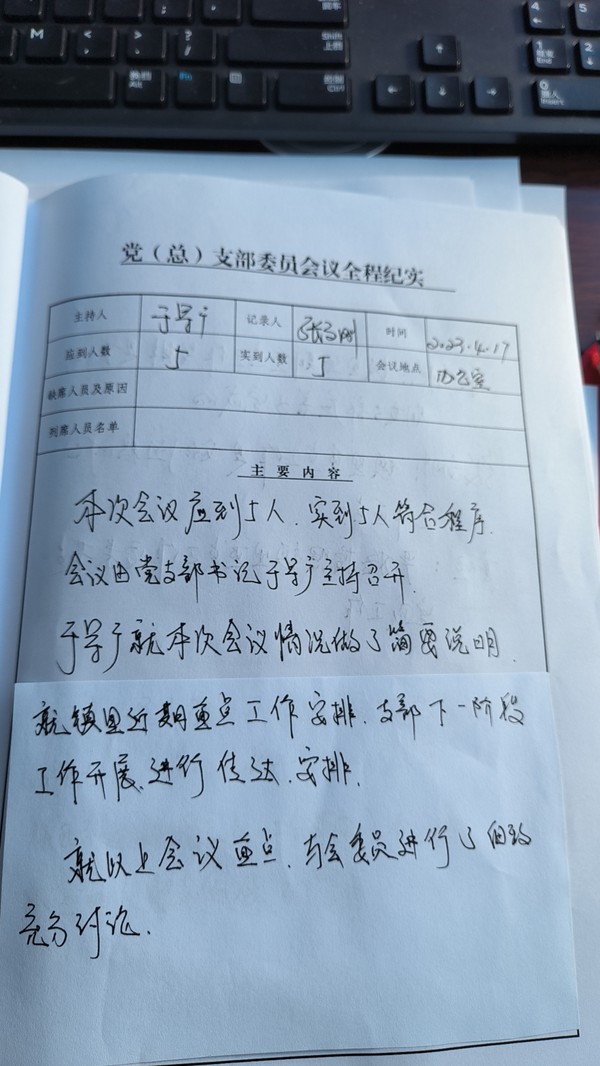 党（总）支部委员会议全程纪实
主持人 于导广 记录人 时间 2023.4.17
应到人数 5 实到人数 5 会议地点 办公室
缺席人员及原因
列席人员名单
主要内容
本次会议应到5人、实到5人符合程序.
会议由党支部书记于导广主持召开.
于导广就本次会议情况做了简要说明.
就镇里近期重点工作安排、支部下一阶段
工作开展、进行传达、安排.
就以上会议重点、与会委员进行了细致
充分讨论.
M
<
>
?
Alt
Fn
Ctrl
Shift
上档
4
5
1
End
2
0
Insert